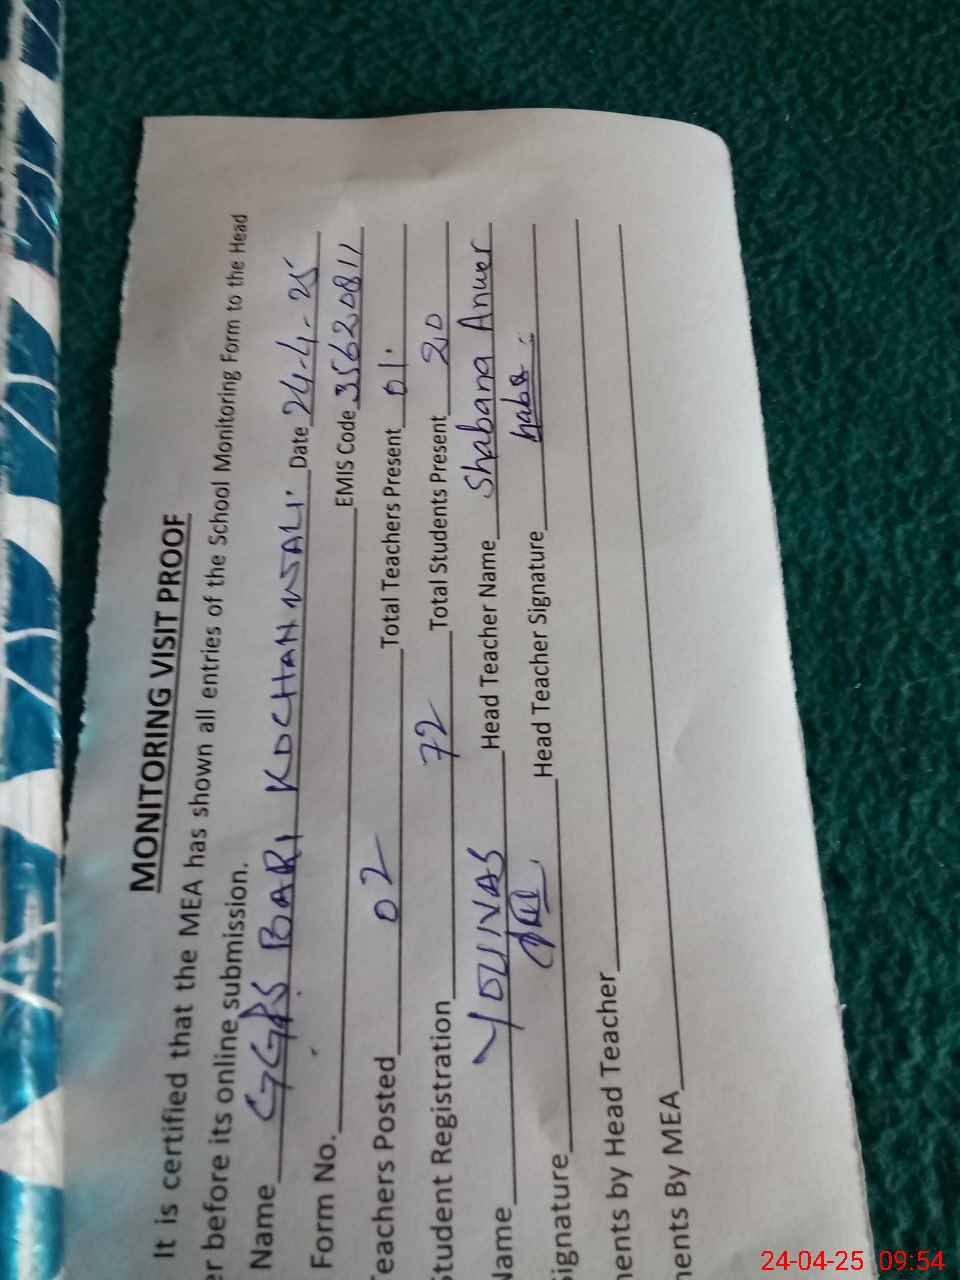 MONITORING VISIT PROOF
It is certified that the MEA has shown all entries of the School Monitoring Form to the Head
er before its online submission.
Name GGPS BARI KOCHAHWALI. Date 24-4-25
Form No. EMIS Code 35620811
Teachers Posted 02 Total Teachers Present 01.
Student Registration 72 Total Students Present 20
Name YOUNAS Head Teacher Name Shabana Anwer
Signature Head Teacher Signature
ments by Head Teacher
ments By MEA
24-04-25 09:54